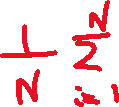 1/N Σ_{i=1}^{N}